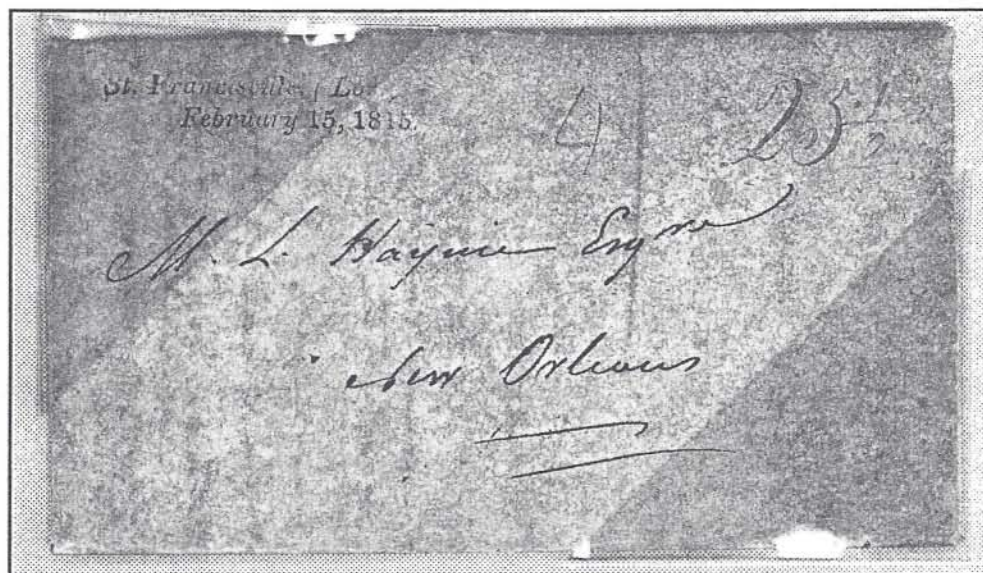 St. Francisville, Lou.
February 15, 1815.
4 25½
M. L. Haynie Esqre
New Orleans